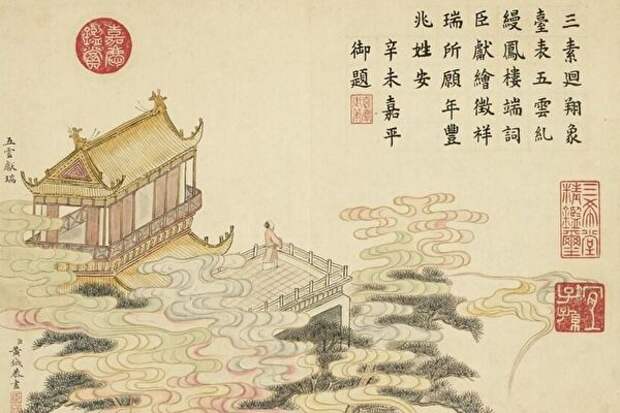 三素迴翔象
臺表五雲糺
縵鳳樓端詞
臣獻繪徵祥
瑞所願年豐
兆姓安
辛未嘉平
御題
嘉慶鑑賞
三希堂精鑑璽
宜子孫
五雲獻瑞
臣黃鉞恭畫